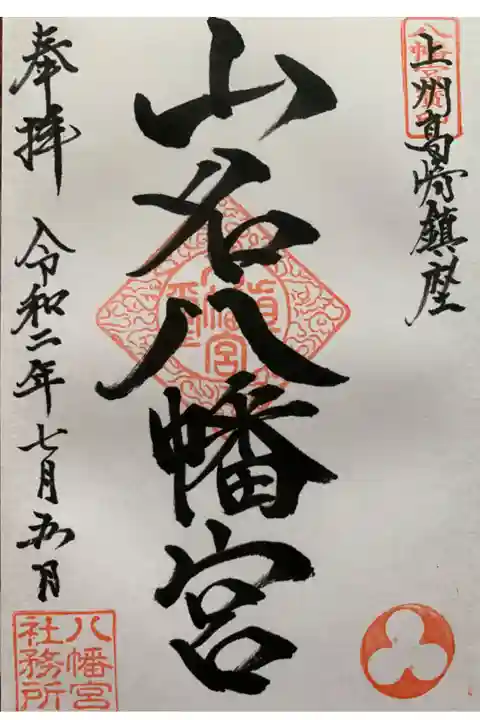 上州高崎鎮座
山名八幡宮
奉拝 令和二年七月五日
八幡宮
社務所